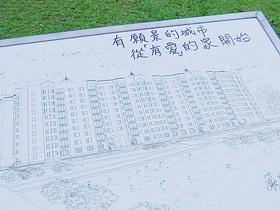 有願景的城市
從有愛的家開始